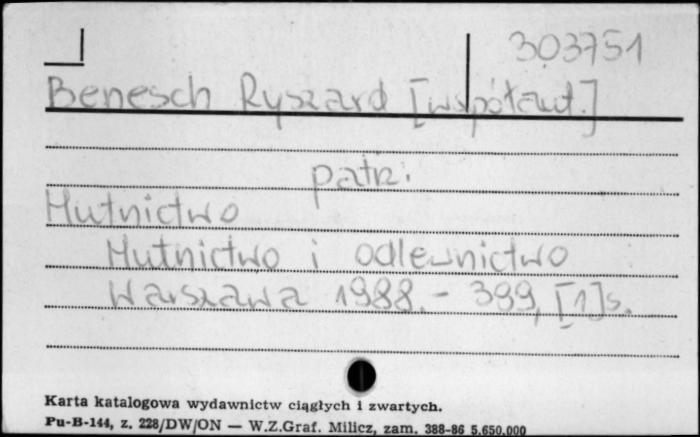 303751
Benesch Ryszard [współaut.]
patrz:
Hutnictwo
Hutnictwo i odlewnictwo
Warszawa 1988. - 399, [1] s.
Karta katalogowa wydawnictw ciągłych i zwartych.
Pu-B-144, z. 228/DW/ON — W.Z.Graf. Milicz, zam. 388-86 5.650.000